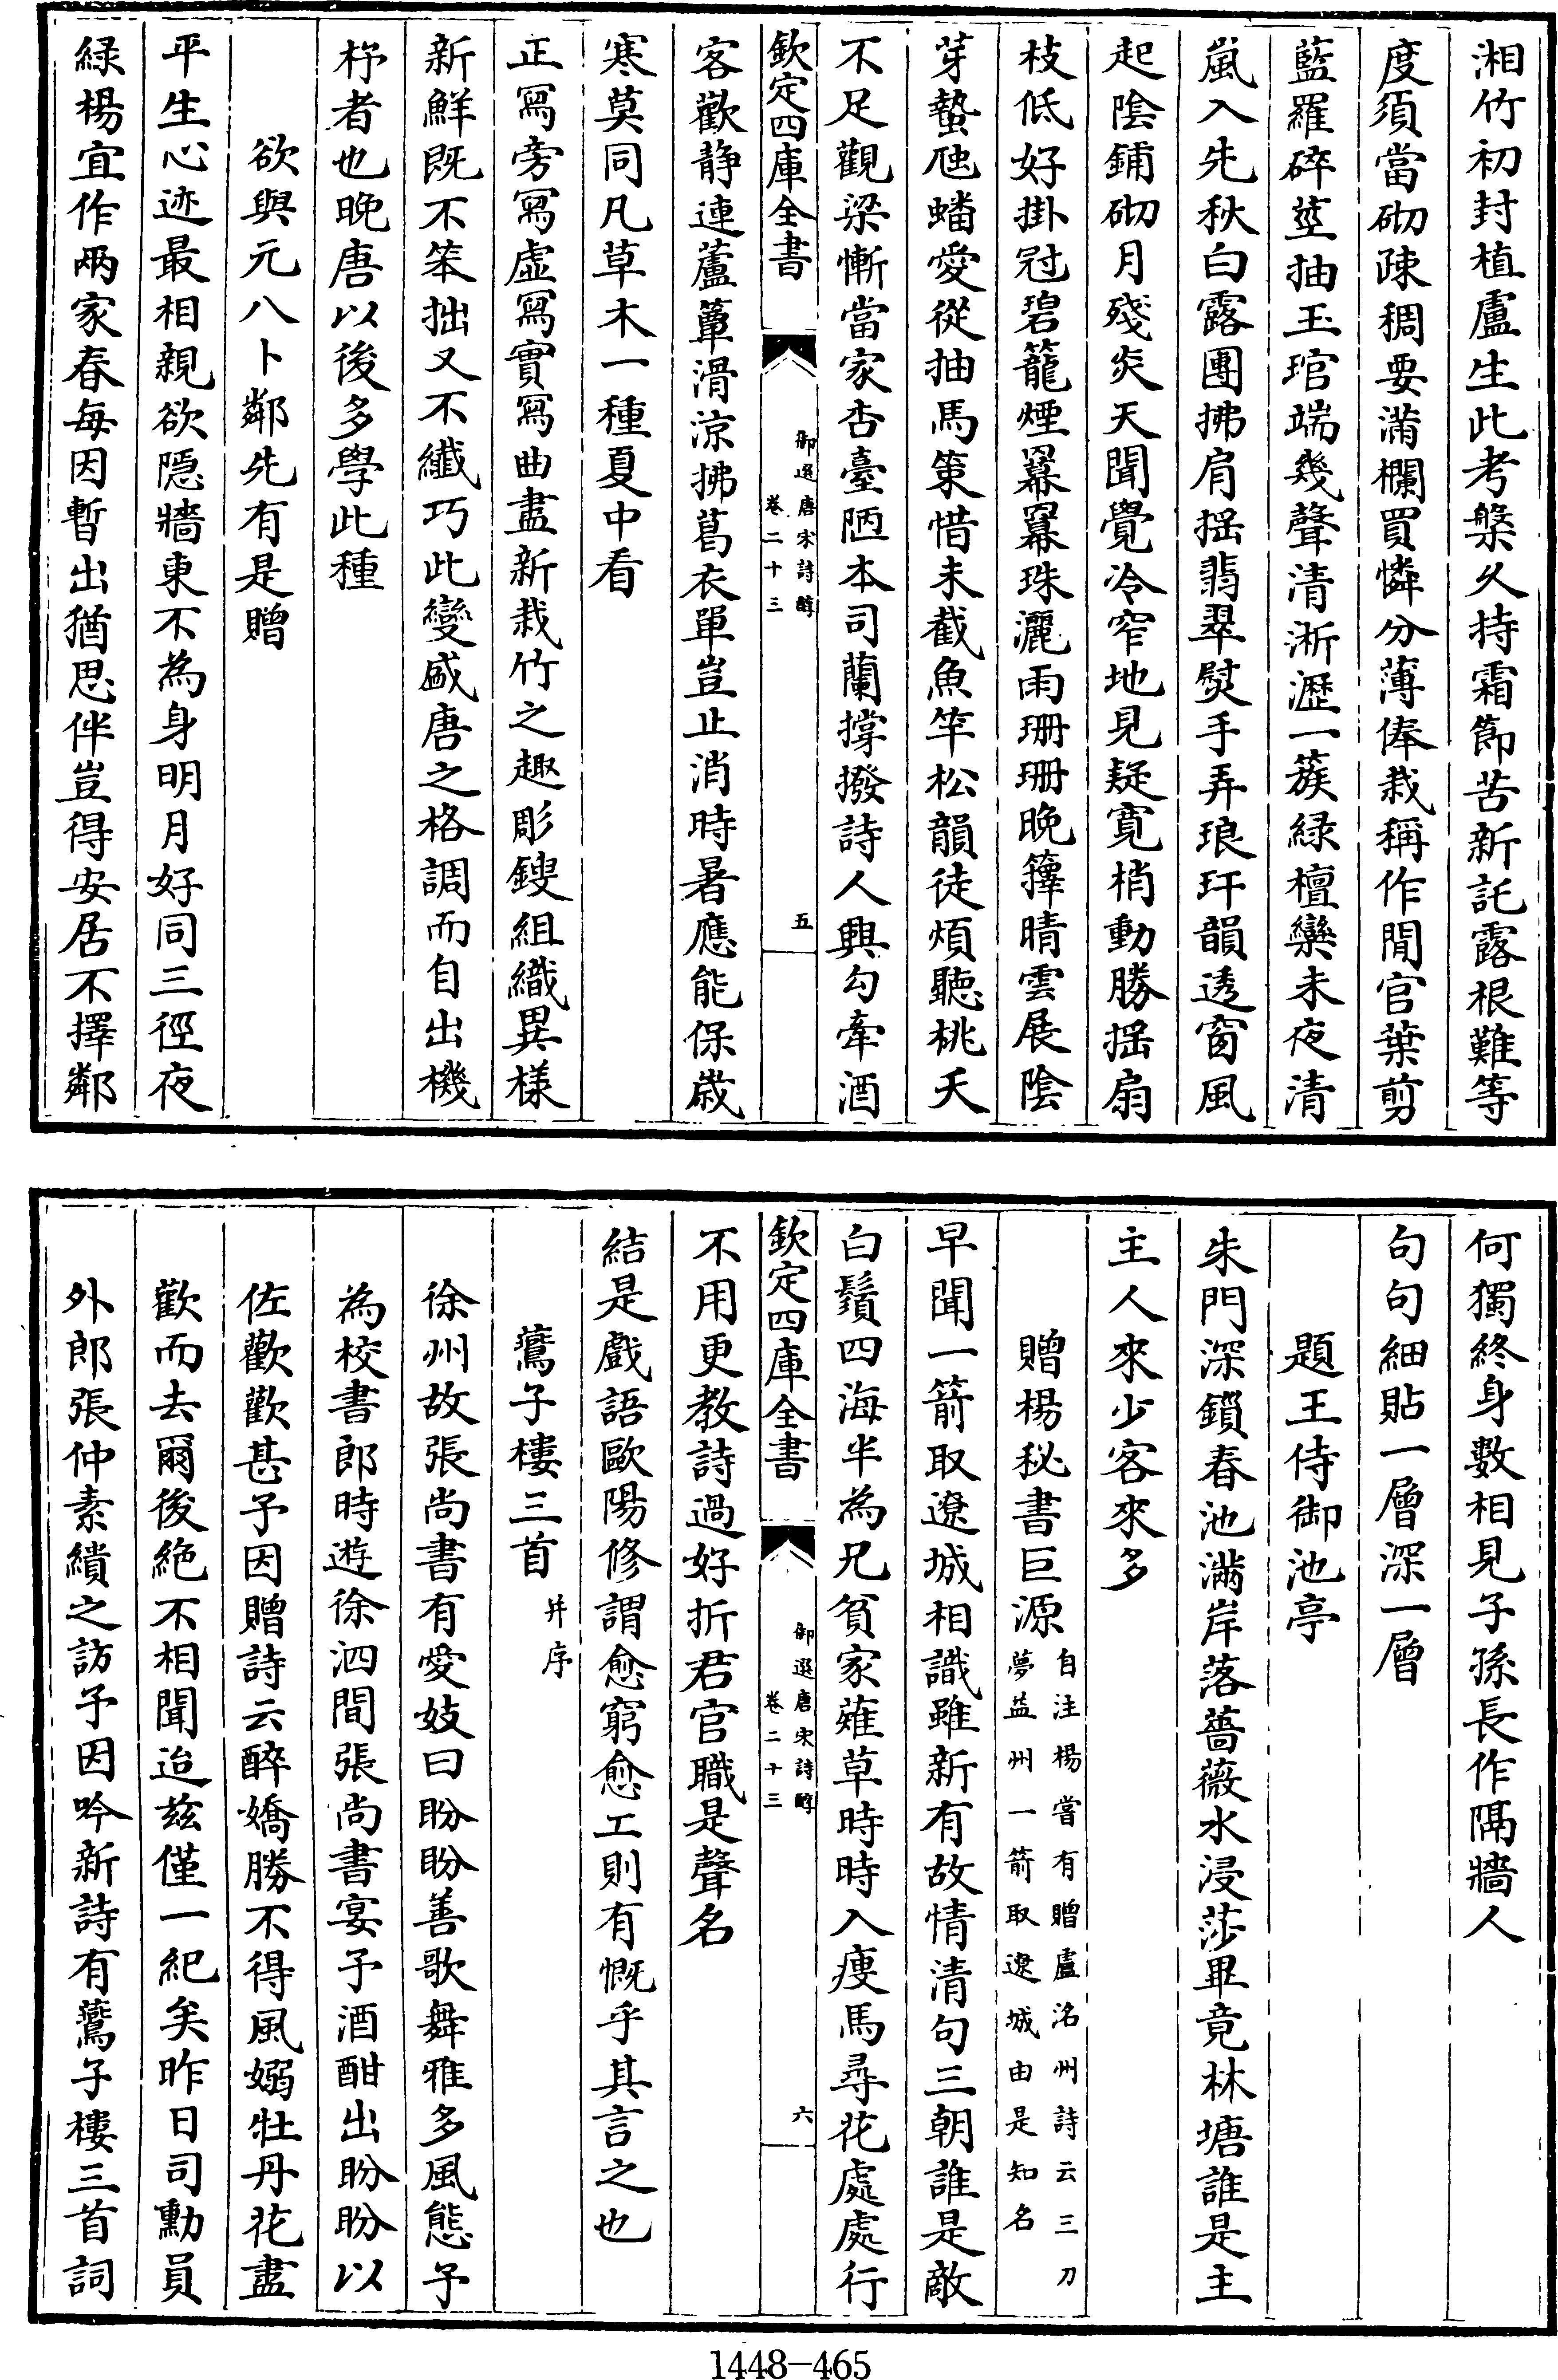 湘竹初封植盧生此考槃久持霜節苦新託露根難等
度須當砌疎稠要滿欄買憐分薄俸栽稱作閒官葉剪
藍羅碎莖抽玉琯端幾聲清淅瀝一簇緑檀欒未夜清
嵐入先秋白露團拂肩揺翡翠熨手弄琅玕韻透窗風
起陰鋪砌月殘炎天聞覺冷窄地見疑寛梢動勝揺扇
枝低好掛冠碧籠煙羃羃珠灑雨珊珊晩籜晴雲展陰
芽蟄虺蟠愛從抽馬策惜未截魚竿松韻徒煩聽桃夭
不足觀梁慚當家杏臺陋本司蘭撐撥詩人興勾牽酒
欽定四庫全書
御選唐宋詩醇
卷二十三
五
客歡静連蘆簟滑涼拂葛衣單豈止消時暑應能保歳
寒莫同凡草木一種夏中看
正冩旁冩虚冩實冩曲盡新栽竹之趣彫鎪組織異樣
新鮮既不笨拙又不纖巧此變盛唐之格調而自出機
杼者也晩唐以後多學此種
欲與元八卜鄰先有是贈
平生心迹最相親欲隠牆東不為身明月好同三徑夜
緑楊宜作兩家春每因暫出猶思伴豈得安居不擇鄰
何獨終身數相見子孫長作隔牆人
句句細貼一層深一層
題王侍御池亭
朱門深鎖春池滿岸落薔薇水浸莎畢竟林塘誰是主
主人來少客來多
贈楊秘書巨源
自注楊嘗有贈盧洺州詩云三刀
夢益州一箭取遼城由是知名
早聞一箭取遼城相識雖新有故情清句三朝誰是敵
白鬚四海半為兄貧家薙草時時入瘦馬尋花處處行
欽定四庫全書
御選唐宋詩醇
卷二十三
六
不用更教詩過好折君官職是聲名
結是戲語歐陽修謂愈窮愈工則有慨乎其言之也
鷰子樓三首
并序
徐州故張尚書有愛妓曰盼盼善歌舞雅多風態予
為校書郎時遊徐泗間張尚書宴予酒酣出盼盼以
佐歡歡甚予因贈詩云醉嬌勝不得風嫋牡丹花盡
歡而去爾後絶不相聞迨兹僅一紀矣昨日司勲員
外郎張仲素繢之訪予因吟新詩有鷰子樓三首詞
1448-465